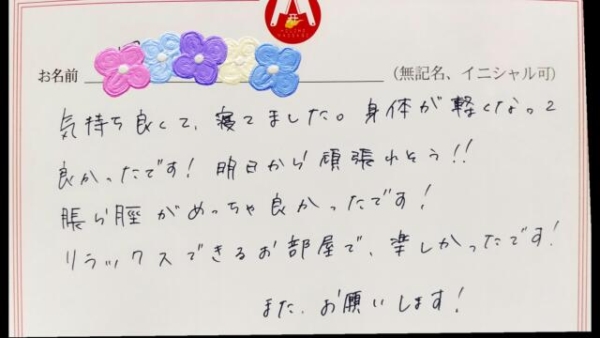 お名前
(無記名、イニシャル可)
気持ち良くて、寝てました。身体が軽くなって
良かったです！明日から頑張れそう!!
脹ら脛がめっちゃ良かったです！
リラックスできるお部屋で、楽しかったです！
また、お願いします！